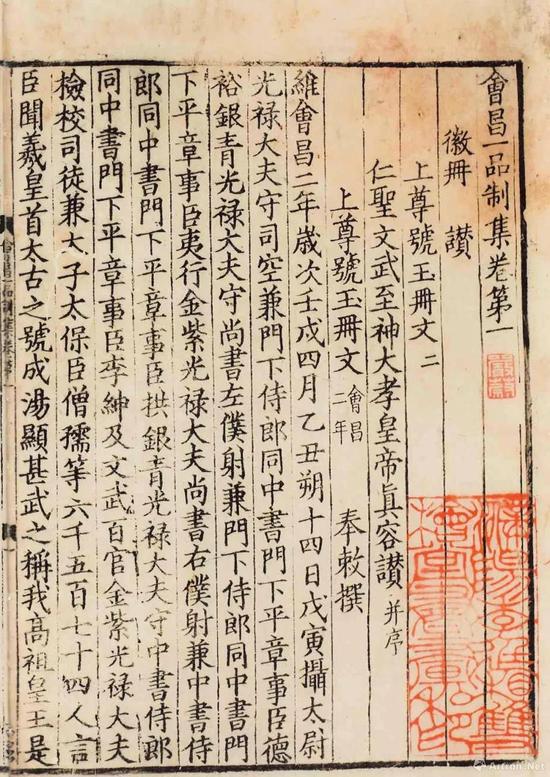 會昌一品制集卷第一
徽冊 讃
上尊號玉冊文二
仁聖文武至神大孝皇帝真容讃并序
上尊號玉冊文會昌二年 奉敕撰
維會昌二年歲次壬戌四月乙丑朔十四日戊寅攝太尉
光祿大夫守司空兼門下侍郎同中書門下平章事臣德
裕銀青光祿大夫守尚書左僕射兼門下侍郎同中書門
下平章事臣夷行金紫光祿大夫尚書右僕射兼中書侍
郎同中書門下平章事臣拱銀青光祿大夫守中書侍郎
同中書門下平章事臣李紳及文武百官金紫光祿大夫
檢校司徒兼太子太保臣僧孺等六千五百七十四人言
臣聞羲皇首太古之號成湯顯甚武之稱我高祖皇王是
會昌一品制集卷一
Artron.Net